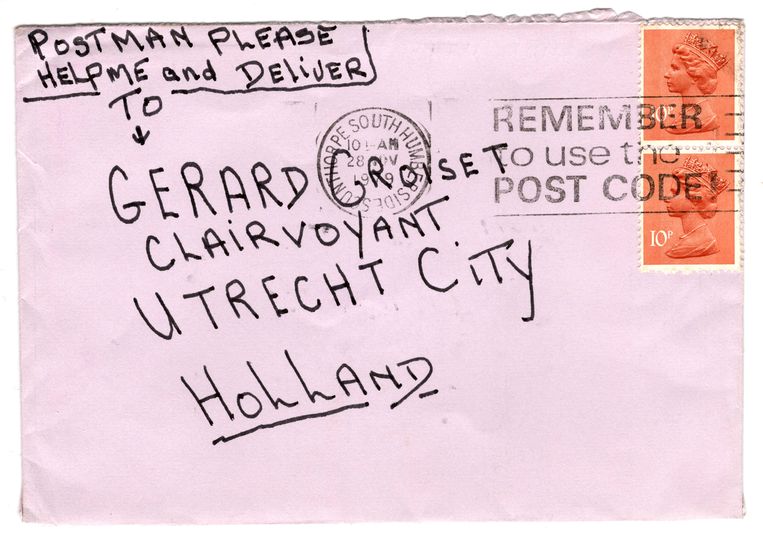 POSTMAN PLEASE
HELP ME and DELIVER
TO
GERARD CROISET
CLAIRVOYANT
UTRECHT CITY
HOLLAND
SCUNTHORPE SOUTH HUMBERSIDE
AM
28
REMEMBER
to use the
POST CODE!
10P
10P